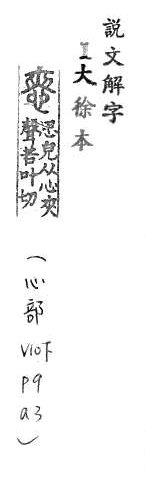 説文解字
大徐本
㥦思皃从心夾
聲苦叶切
(心部
V10下
p9
a3)